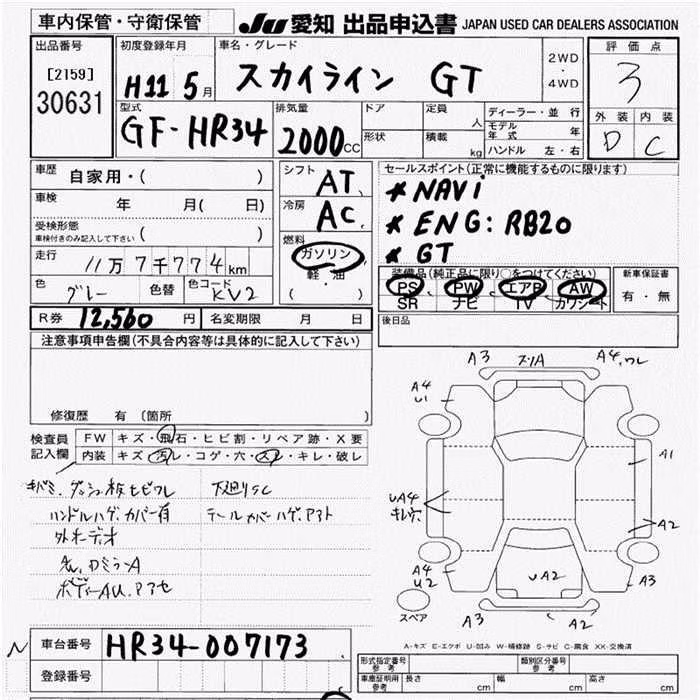 車内保管・守衛保管 JU 愛知 出品申込書 JAPAN USED CAR DEALERS ASSOCIATION
出品番号 初度登録年月 車名・グレード 2WD・4WD 評価点
[2159] H11 5月 スカイライン GT 3
30631 型式 排気量 ドア 定員 人 ディーラー・並行 外装 内装
GF-HR34 2000cc 形状 積載 kg モデル年式 年 D C
ハンドル 左・右
車歴 自家用・( ) シフト AT セールスポイント(正常に機能するものに限ります)
車検 年 月( 日) 冷房 AC * NAVi
受検形態 * ENG: RB20
車検付きのみ記入して下さい ( ) 燃料 * GT
走行 11万7千774km ガソリン 装備品(純正品に限り○をつけてください) 新車保証書
軽・油 PS PW エアB AW 有・無
色 グレー 色替 色コード KV2 ( ) SR ナビ TV カワシート
R券 12,560円 名変期限 月 日 後日品
注意事項申告欄(不具合内容等は具体的に記入して下さい)
修復歴 有(箇所
検査員 FW キズ・飛石・ヒビ割・リペア跡・X要
記入欄 内装 キズ・汚レ・コゲ・穴・スレ・キレ・破レ
ダッシュ板ヒビワレ 下廻りSC
ハンドルハゲ、カバー有 テールカバーハゲ、
外オーディオ
A3 A4、ワレ
A4
U1
A1
UA4
キレ穴
A2
A4
U2
UA2 A3
スペア A3 A2
A-キズ E-エクボ U-凹み W-補修跡 S-サビ C-腐食 XX-交換済
N 車台番号 HR34-007173 形式指定番号 参考 類別区分番号 参考
登録番号 車庫証明用 参考 長さ cm 幅 cm 高さ cm